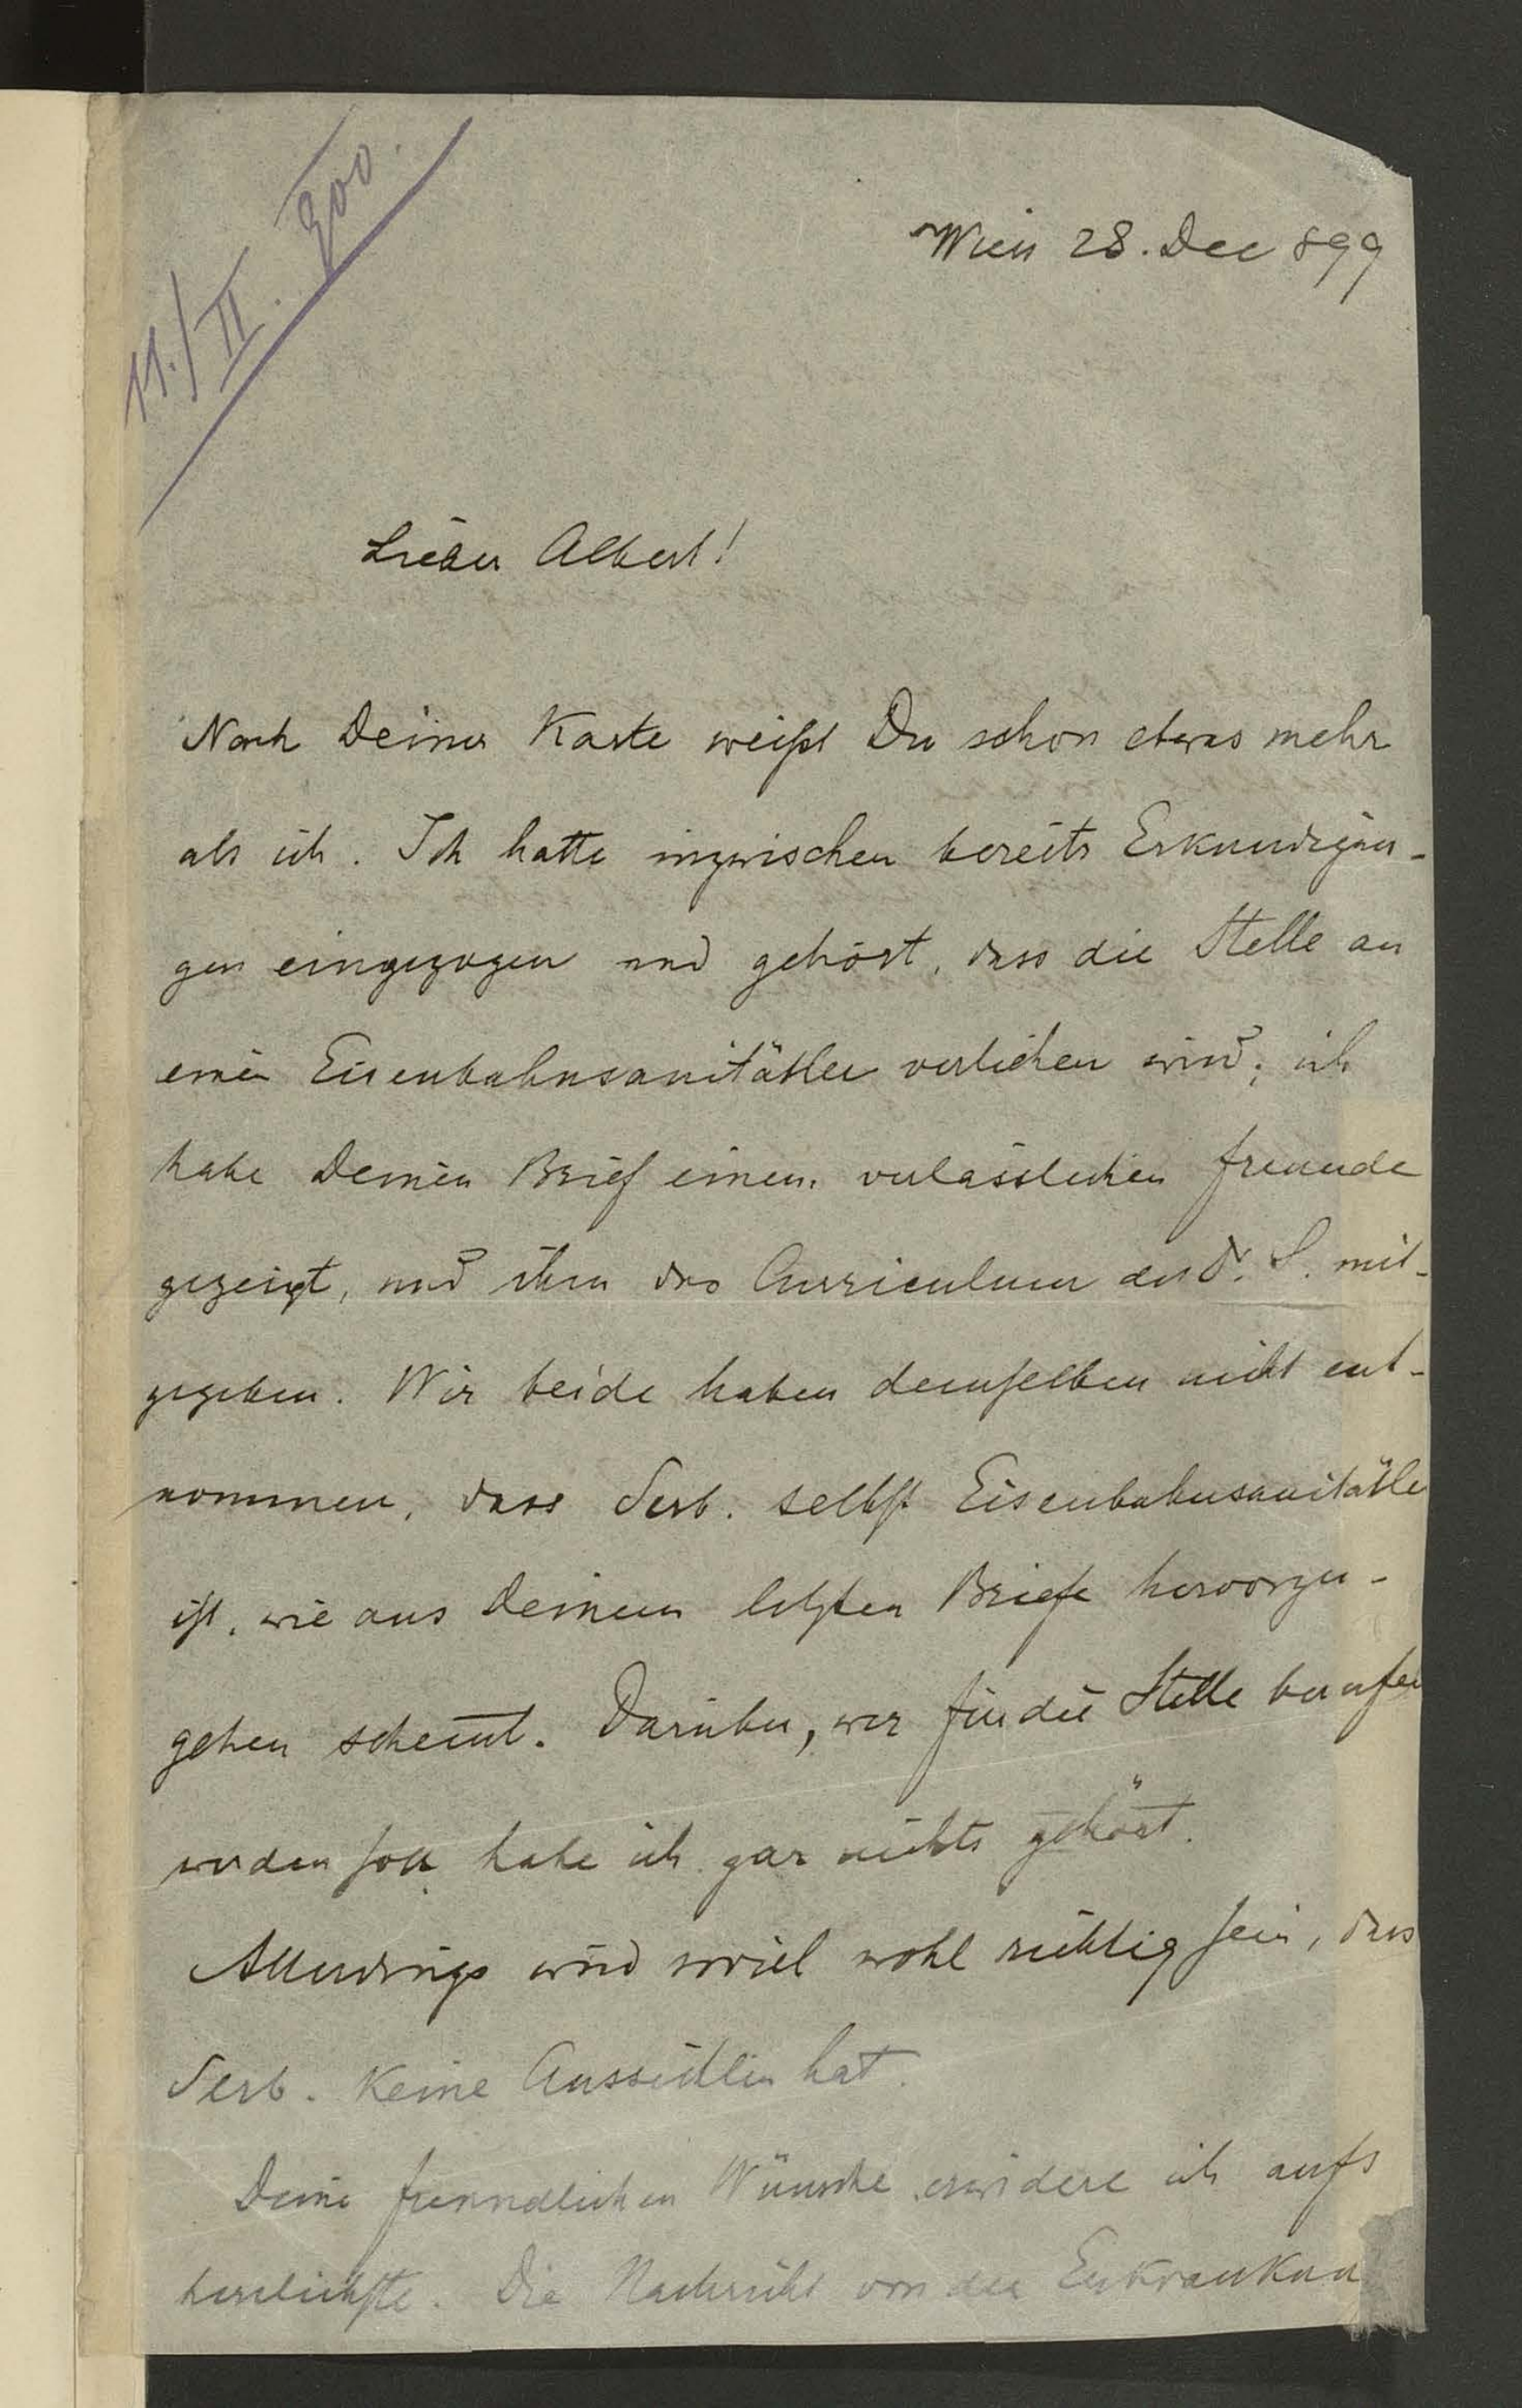 11./II. 900.
Wien 28. Dec 899
Lieber Albert!
Nach Deiner Karte weißt Du schon etwas mehr
als ich. Ich hatte inzwischen bereits Erkundigun-
gen eingezogen und gehört, dass die Stelle an
einen Eisenbahnsanitätler verliehen wird; ich
habe Deinen Brief einem verlässlichen Freunde
gezeigt, und ihm das Curriculum des Dr. S. mit-
gegeben. Wir beide haben demselben nicht ent-
nommen, dass Serb. selbst Eisenbahnsanitätler
ist, wie aus Deinem letzten Briefe hervorzu-
gehen scheint. Darüber, wer für die Stelle berufen
werden soll habe ich gar nichts gehört.
Allerdings wird soviel wohl richtig sein, dass
Serb. keine Aussichten hat.
Deine freundlichen Wünsche erwidere ich aufs
herzlichste. Die Nachricht von der Erkrankun